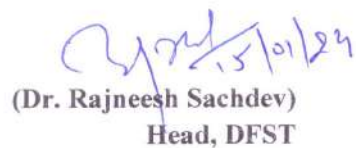 15/01/24
(Dr. Rajneesh Sachdev)
Head, DFST